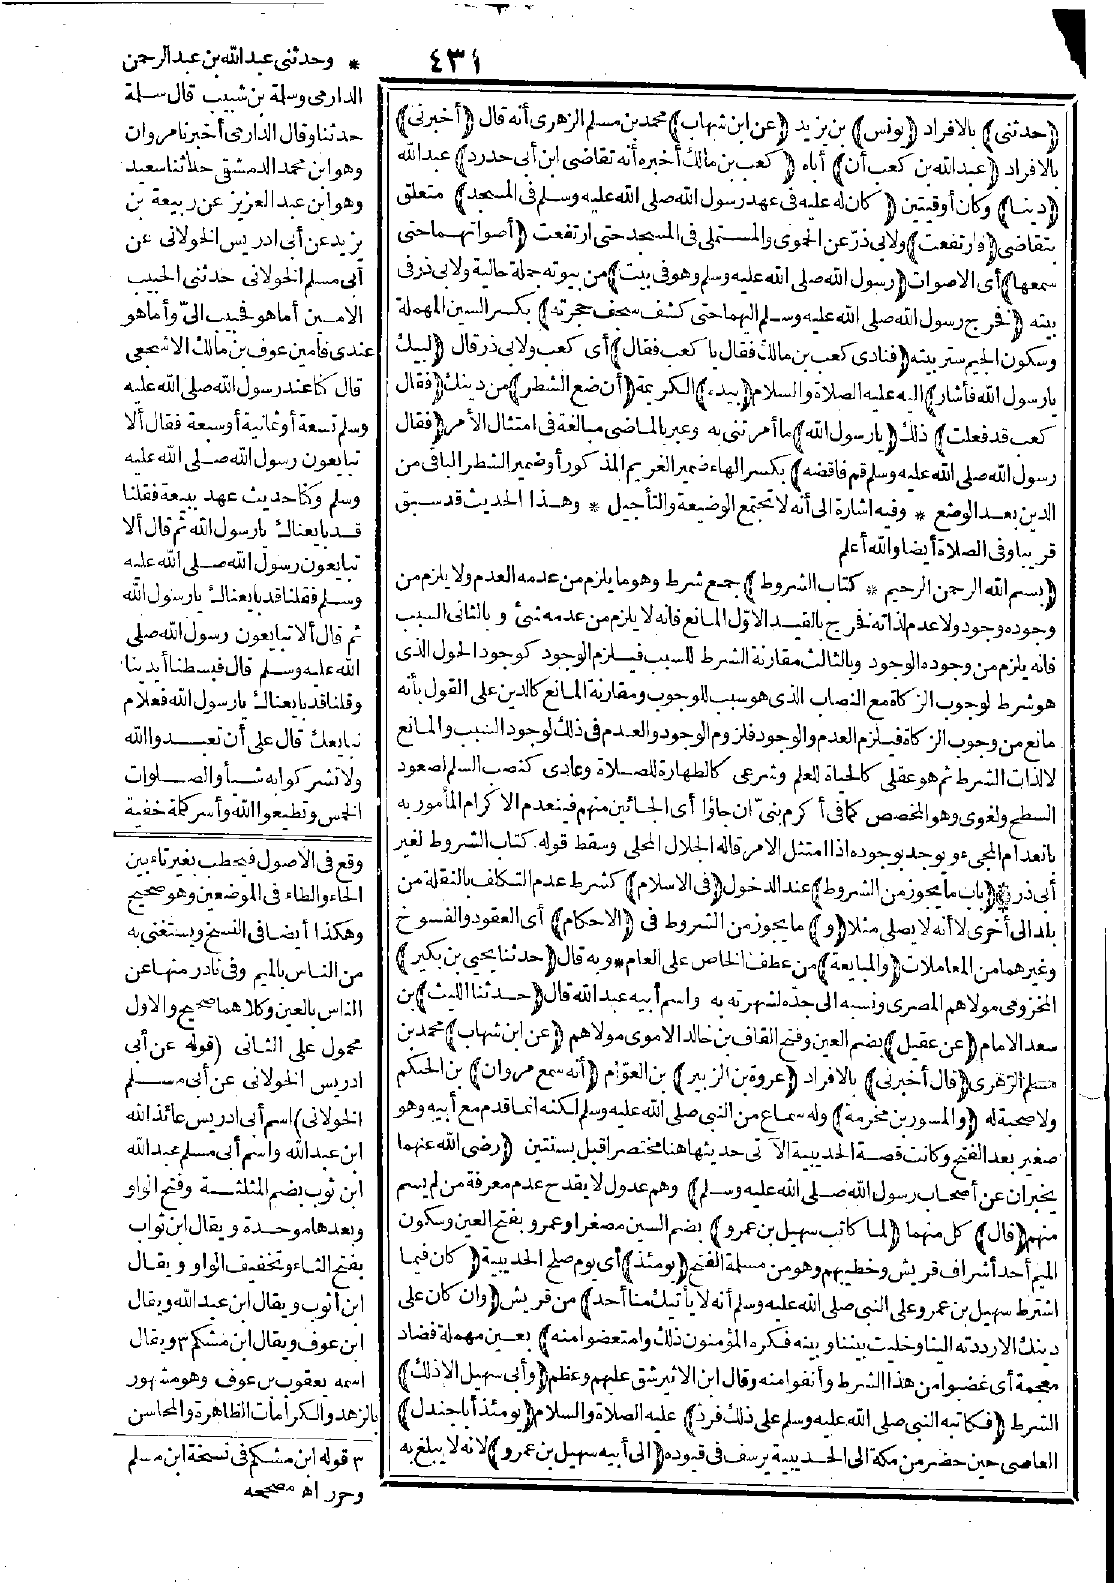 ٤٣١
(حدثنى) بالافراد (يونس) بن يزيد (عن ابن شهاب) محمد بن مسلم الزهرى أنه قال (أخبرنى)
بالافراد (عبد الله بن كعب أن) أباه (كعب بن مالك أخبره أنه تقاضى ابن أبى حدرد) عبد الله
(دينا) وكان أوقيتين (كان له عليه فى عهد رسول الله صلى الله عليه وسلم فى المسجد) متعلق
بتقاضى (فارتفعت) ولابى ذر عن الحموى والمستملى فى المسجد حتى ارتفعت (أصواتهما حتى
سمعها) أى الاصوات (رسول الله صلى الله عليه وسلم وهو فى بيت) من بيوته جملة حالية ولابى ذر فى
بيته (فخرج رسول الله صلى الله عليه وسلم اليهما حتى كشف سجف حجرته) بكسر السين المهملة
وسكون الجيم ستر بيته (فنادى كعب بن مالك فقال يا كعب فقال) أى كعب ولابى ذر قال (لبيك
يارسول الله فأشار) اليه عليه الصلاة والسلام (بيده) الكريمة (أن ضع الشطر) من دينك (فقال
كعب قد فعلت) ذلك (يارسول الله) ما أمرتنى به وعبر بالماضى مبالغة فى امتثال الأمر (فقال
رسول الله صلى الله عليه وسلم قم فاقضه) بكسر الهاء ضمير الغريم المذكور أو ضمير الشطر الباقى من
الدين بعد الوضع * وفيه اشارة الى أنه لا تجتمع الوضيعة والتأجيل * وهذا الحديث قد سبق
قريبا وفى الصلاة أيضا والله أعلم
(بسم الله الرحمن الرحيم * كتاب الشروط) جمع شرط وهو ما يلزم من عدمه العدم ولا يلزم من
وجوده وجود ولا عدم لذاته فخرج بالقيد الاول المانع فانه لا يلزم من عدمه شئ و بالثانى السبب
فانه يلزم من وجوده الوجود وبالثالث مقارنة الشرط للسبب فيلزم الوجود كوجود الحول الذى
هو شرط لوجوب الزكاة مع النصاب الذى هو سبب للوجوب ومقارنة المانع كالدين على القول بأنه
مانع من وجوب الزكاة فيلزم العدم والوجود فلزوم الوجود والعدم فى ذلك لوجود السبب والمانع
لا لذات الشرط ثم هو عقلى كالحياة للعلم وشرعى كالطهارة للصلاة وعادى كنصب السلم لصعود
السطح ولغوى وهو المخصص كما فى أكرم بنى ان جاؤا أى الجائين منهم فينعدم الاكرام المأمور به
بانعدام المجىء ويوجد بوجوده اذا امتثل الامر قاله الجلال المحلى وسقط قوله كتاب الشروط لغير
أبى ذر * (باب ما يجوز من الشروط) عند الدخول (فى الاسلام) كشرط عدم التكلف بالنقلة من
بلد الى أخرى لا أنه لا يصلى مثلا (و) ما يجوز من الشروط فى (الاحكام) أى العقود والفسوخ
وغيرهما من المعاملات (والمبايعة) من عطف الخاص على العام * وبه قال (حدثنا يحيى بن بكير)
المخزومى مولاهم المصرى ونسبه الى جده لشهرته به واسم أبيه عبد الله قال (حدثنا الليث) بن
سعد الامام (عن عقيل) بضم العين وفتح القاف بن خالد الاموى مولاهم (عن ابن شهاب) محمد بن
مسلم الزهرى (قال أخبرنى) بالافراد (عروة بن الزبير) بن العوام (أنه سمع مروان) بن الحكم
ولا صحبة له (والمسور بن مخرمة) وله سماع من النبى صلى الله عليه وسلم لكنه انما قدم مع أبيه وهو
صغير بعد الفتح وكانت قصة الحديبية الآتى حديثها هنا مختصرا قبل بسنتين (رضى الله عنهما
يخبران عن أصحاب رسول الله صلى الله عليه وسلم) وهم عدول لا يقدح عدم معرفة من لم يسم
منهم (قال) كل منهما (لما كاتب سهيل بن عمرو) بضم السين مصغرا وعمرو بفتح العين وسكون
الميم أحد أشراف قريش وخطيبهم وهو من مسلمة الفتح (يومئذ) أى يوم صلح الحديبية (كان فيما
اشترط سهيل بن عمرو على النبى صلى الله عليه وسلم أنه لا يأتيك منا أحد) من قريش (وان كان على
دينك الا رددته الينا وخليت بيننا وبينه فكره المؤمنون ذلك وامتعضوا منه) بعين مهملة فضاد
معجمة أى غضبوا من هذا الشرط وأنفوا منه وقال ابن الاثير شق عليهم وعظم (وأبى سهيل الا ذلك)
الشرط (فكاتبه النبى صلى الله عليه وسلم على ذلك فرد) عليه الصلاة والسلام (يومئذ أبا جندل)
العاصى حين حضر من مكة الى الحديبية يرسف فى قيوده (الى أبيه سهيل بن عمرو) لانه لا يبلغ به
* وحدثنى عبد الله بن عبد الرحمن
الدارمى وسلمة بن شبيب قال سلمة
حدثنا وقال الدارمى أخبرنا مروان
وهو ابن محمد الدمشقى حدثنا سعيد
وهو ابن عبد العزيز عن ربيعة بن
يزيد عن أبى ادريس الخولانى عن
أبى مسلم الخولانى حدثنى الحبيب
الامين أما هو فحبيب الىّ وأما هو
عندى فأمين عوف بن مالك الاشجعى
قال كنا عند رسول الله صلى الله عليه
وسلم تسعة أو ثمانية أو سبعة فقال ألا
تبايعون رسول الله صلى الله عليه
وسلم وكنا حديث عهد ببيعة فقلنا
قد بايعناك يارسول الله ثم قال ألا
تبايعون رسول الله صلى الله عليه
وسلم فقلنا قد بايعناك يارسول الله
ثم قال ألا تبايعون رسول الله صلى
الله عليه وسلم قال فبسطنا أيدينا
وقلنا قد بايعناك يارسول الله فعلام
نبايعك قال على أن تعبدوا الله
ولا تشركوا به شيأ والصلوات
الخمس وتطيعوا الله وأسر كلمة خفية
وقع فى الاصول فيحطب بغير تاء بين
الحاء والطاء فى الموضعين وهو صحيح
وهكذا أيضا فى النسخ ويستغنى به
من الناس بالميم وفى نادر منها عن
الناس بالعين وكلاهما صحيح والاول
محمول على الثانى (قوله عن أبى
ادريس الخولانى عن أبى مسلم
الخولانى) اسم أبى ادريس عائذ الله
ابن عبد الله واسم أبى مسلم عبد الله
ابن ثوب بضم المثلثة وفتح الواو
وبعدها موحدة ويقال ابن ثواب
بفتح الثاء وتخفيف الواو ويقال
ابن أثوب ويقال ابن عبد الله ويقال
ابن عوف ويقال ابن مشكم ٣ ويقال
اسمه يعقوب بن عوف وهو مشهور
بالزهد والكرامات الظاهرة والمحاسن
٣ قوله ابن مشكم فى نسخة ابن مسلم
وحرر اه مصححه